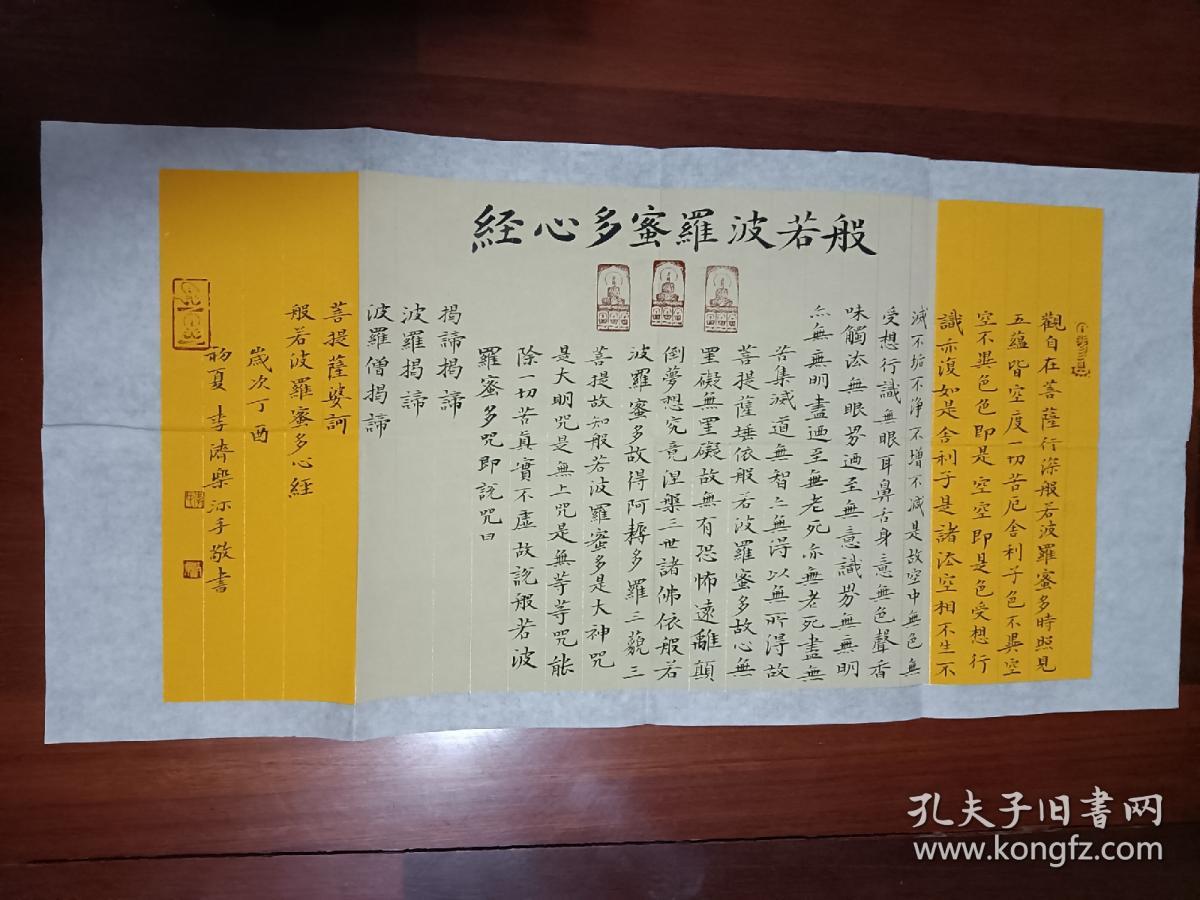 般若波羅蜜多心経
觀自在菩薩行深般若波羅蜜多時照見
五蘊皆空度一切苦厄舍利子色不異空
空不異色色即是空空即是色受想行
識亦復如是舍利子是諸法空相不生不
滅不垢不浄不增不減是故空中無色無
受想行識無眼耳鼻舌身意無色聲香
味觸法無眼界迺至無意識界無無明
亦無無明盡迺至無老死亦無老死盡無
苦集滅道無智亦無得以無所得故
菩提薩埵依般若波羅蜜多故心無
罣礙無罣礙故無有恐怖遠離顛
倒夢想究竟涅槃三世諸佛依般若
波羅蜜多故得阿耨多羅三藐三
菩提故知般若波羅蜜多是大神咒
是大明咒是無上咒是無等等咒能
除一切苦真實不虛故説般若波
羅蜜多咒即説咒曰
揭諦揭諦
波羅揭諦
波羅僧揭諦
菩提薩婆訶
般若波羅蜜多心経
歲次丁酉
初夏李濟樂沐手敬書
孔夫子旧書网
www.kongfz.com